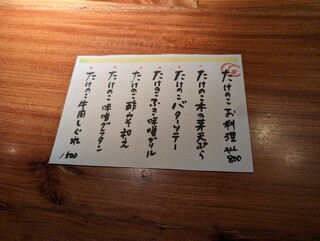 たけのこお料理 ALL 880
たけのこ木の芽天ぷら
たけのこバターソテー
たけのこふき味噌グリル
たけのこ酢みそ和え
たけのこ味噌グラタン
たけのこ牛肉しぐれ
1500